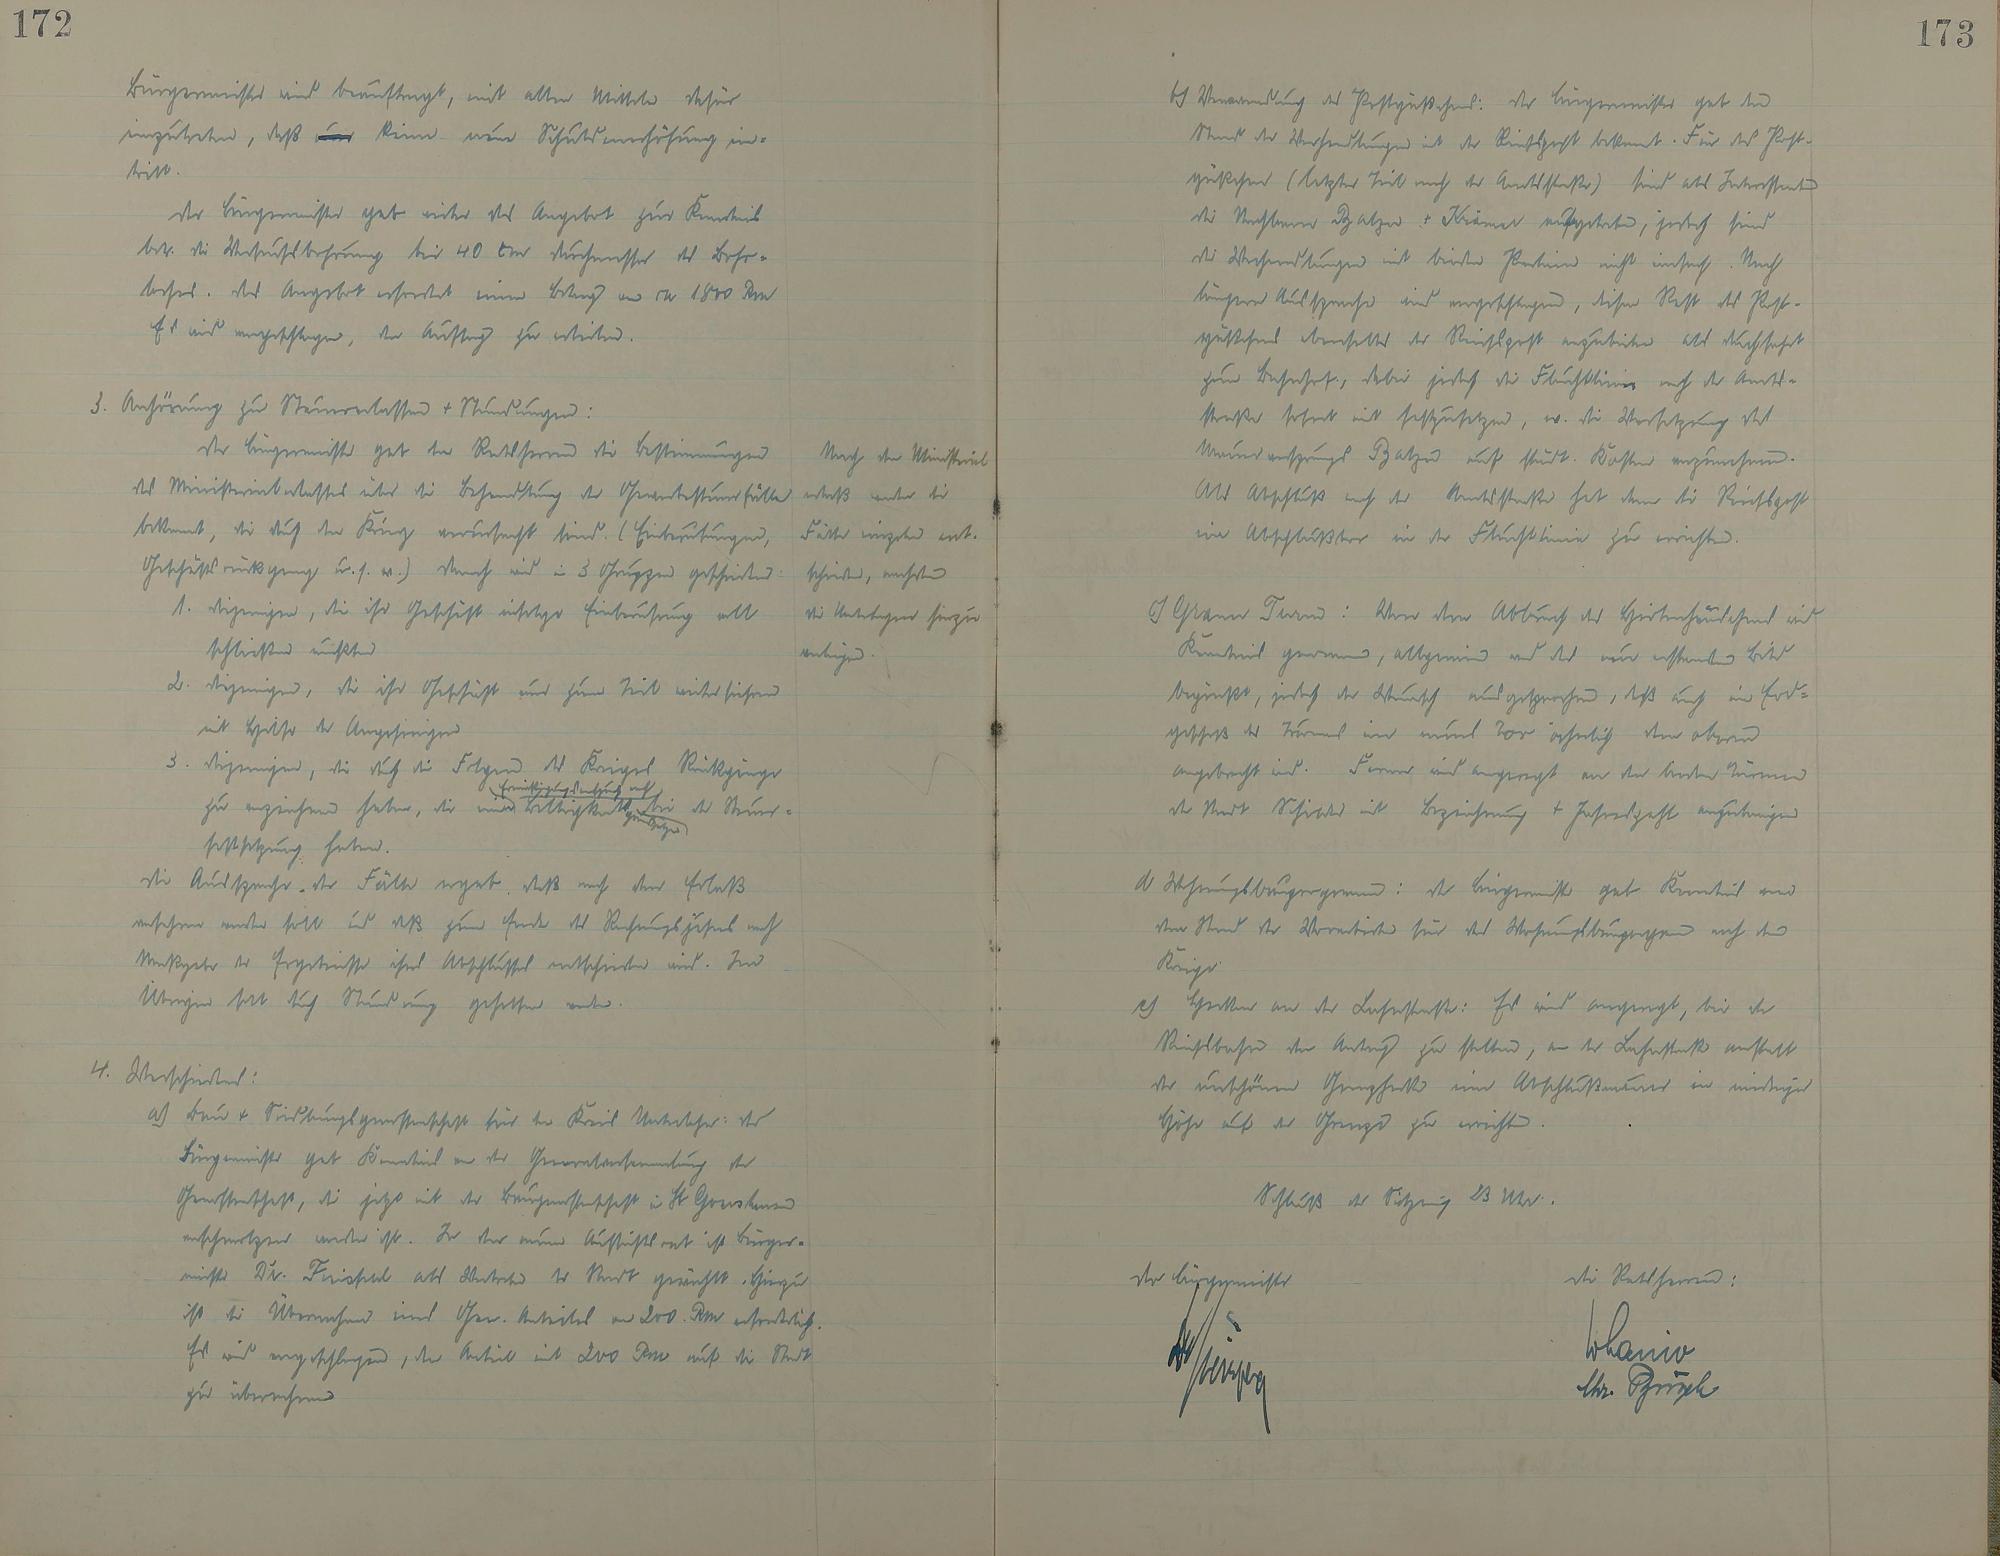 172
Bürgermeister wird beauftragt, mit allen Mitteln dafür
einzutreten, daß keine neue Schuldenerhöhung ein-
tritt.
Der Bürgermeister gab weiter das Angebot zur Kenntnis
betr. die Versuchsbohrung bei 40 cm Durchmesser des Bohr-
loches. Das Angebot erfordert einen Betrag von ca 1800 RM
Es wird vorgeschlagen, den Auftrag zu erteilen.
3. Anhörung zu Steuererlassen + Stundungen:
Der Bürgermeister gab den Ratsherren die Bestimmungen
des Ministerialerlasses über die Behandlung der Gewerbesteuerfälle
bekannt, die durch den Krieg verursacht sind. (Einberufungen,
Geschäftsrückgang u.s.w.) Danach wird in 3 Gruppen geschieden:
1. diejenigen, die ihr Geschäft infolge Einberufung
schließen mußten
2. diejenigen, die ihr Geschäft nur zum Teil weiterführen
mit Hilfe der Angehörigen
3. diejenigen, die durch die Folgen des Krieges Rückgänge
zu verzeichnen haben, die Billigkeits bei der Steuer-
festsetzung haben.
Die Aussprache der Fälle ergab, daß nach dem Erlaß
verfahren werden soll und daß zum Ende des Rechnungsjahres nach
Maßgabe der Ergebnisse ihres Abschlusses entschieden wird. Im
Übrigen soll durch Stundung geholfen werden.
Nach dem Ministerial
erlaß werden die
Fälle einzeln ent-
schieden,
die Unterlagen hierzu
vorliegen.
4. Verschiedenes:
a) Bau + Siedlungsgenossenschaft für den Kreis Unterlahn: der
Bürgermeister gab Kenntnis von der Generalversammlung der
Genossenschaft, die jetzt mit der Baugenossenschaft in St Goarshausen
verschmolzen worden ist. In den neuen Aufsichtsrat ist Bürger-
meister Dr. als Vertreter der Stadt gewählt. Hierzu
ist die Übernahme eines Gen. Anteiles von 200. RM erforderlich.
Es wird vorgeschlagen, den Anteil mit 200 RM auf die Stadt
zu übernehmen
173
b) Verwendung des Postgäßchens: Der Bürgermeister gab den
Stand der Verhandlungen mit der Reichspost bekannt. Für das Post-
gäßchen (letzter Teil nach der Amtsstraße) sind als Interessenten
die Nachbarn Balzer + Krämer aufgetreten, jedoch sind
die Verhandlungen mit beiden Parteien nicht einfach. Nach
längerer Aussprache wird vorgeschlagen, diesen Rest des Post-
gäßchens ebenfalls der Reichspost anzubieten als Durchfahrt
zum Bahnhof, dabei jedoch die Fluchtlinie nach der Amts-
straße sofort mit festzusetzen, u. die Versetzung des
Mauervorsprungs Balzer auf städt. Kosten vorzunehmen.
Als Abschluß nach der Amtsstraße hat dann die Reichspost
ein Abschlußtor in der Fluchtlinie zu errichten.
c) Grauer Turm: Von dem Abbruch des Hirtenhäuschens wird
Kenntnis genommen, allgemein wird das neu erstandene Bild
begrüßt, jedoch der Wunsch ausgesprochen, daß auch im Erd-
geschoß des Turmes ein neues Tor ähnlich dem oberen
angebracht wird. Ferner wird angeregt an den beiden Türmen
der Stadt Schilder mit Bezeichnung + Jahreszahl anzubringen
d) Wohnungsbauprogramm: der Bürgermeister gab Kenntnis von
dem Stand der Vorarbeiten für das Wohnungsbauprogramm nach dem
Kriege
e) Hecken an der Lahnstraße: Es wird angeregt, bei der
Reichsbahn den Antrag zu stellen, an der Lahnstraße anstatt
der unschönen Grenzhecke eine Abschlußmauer in niedriger
Höhe auf der Grenze zu errichten.
Schluß der Sitzung 23 Uhr.
Der Bürgermeister
Die Ratsherren: